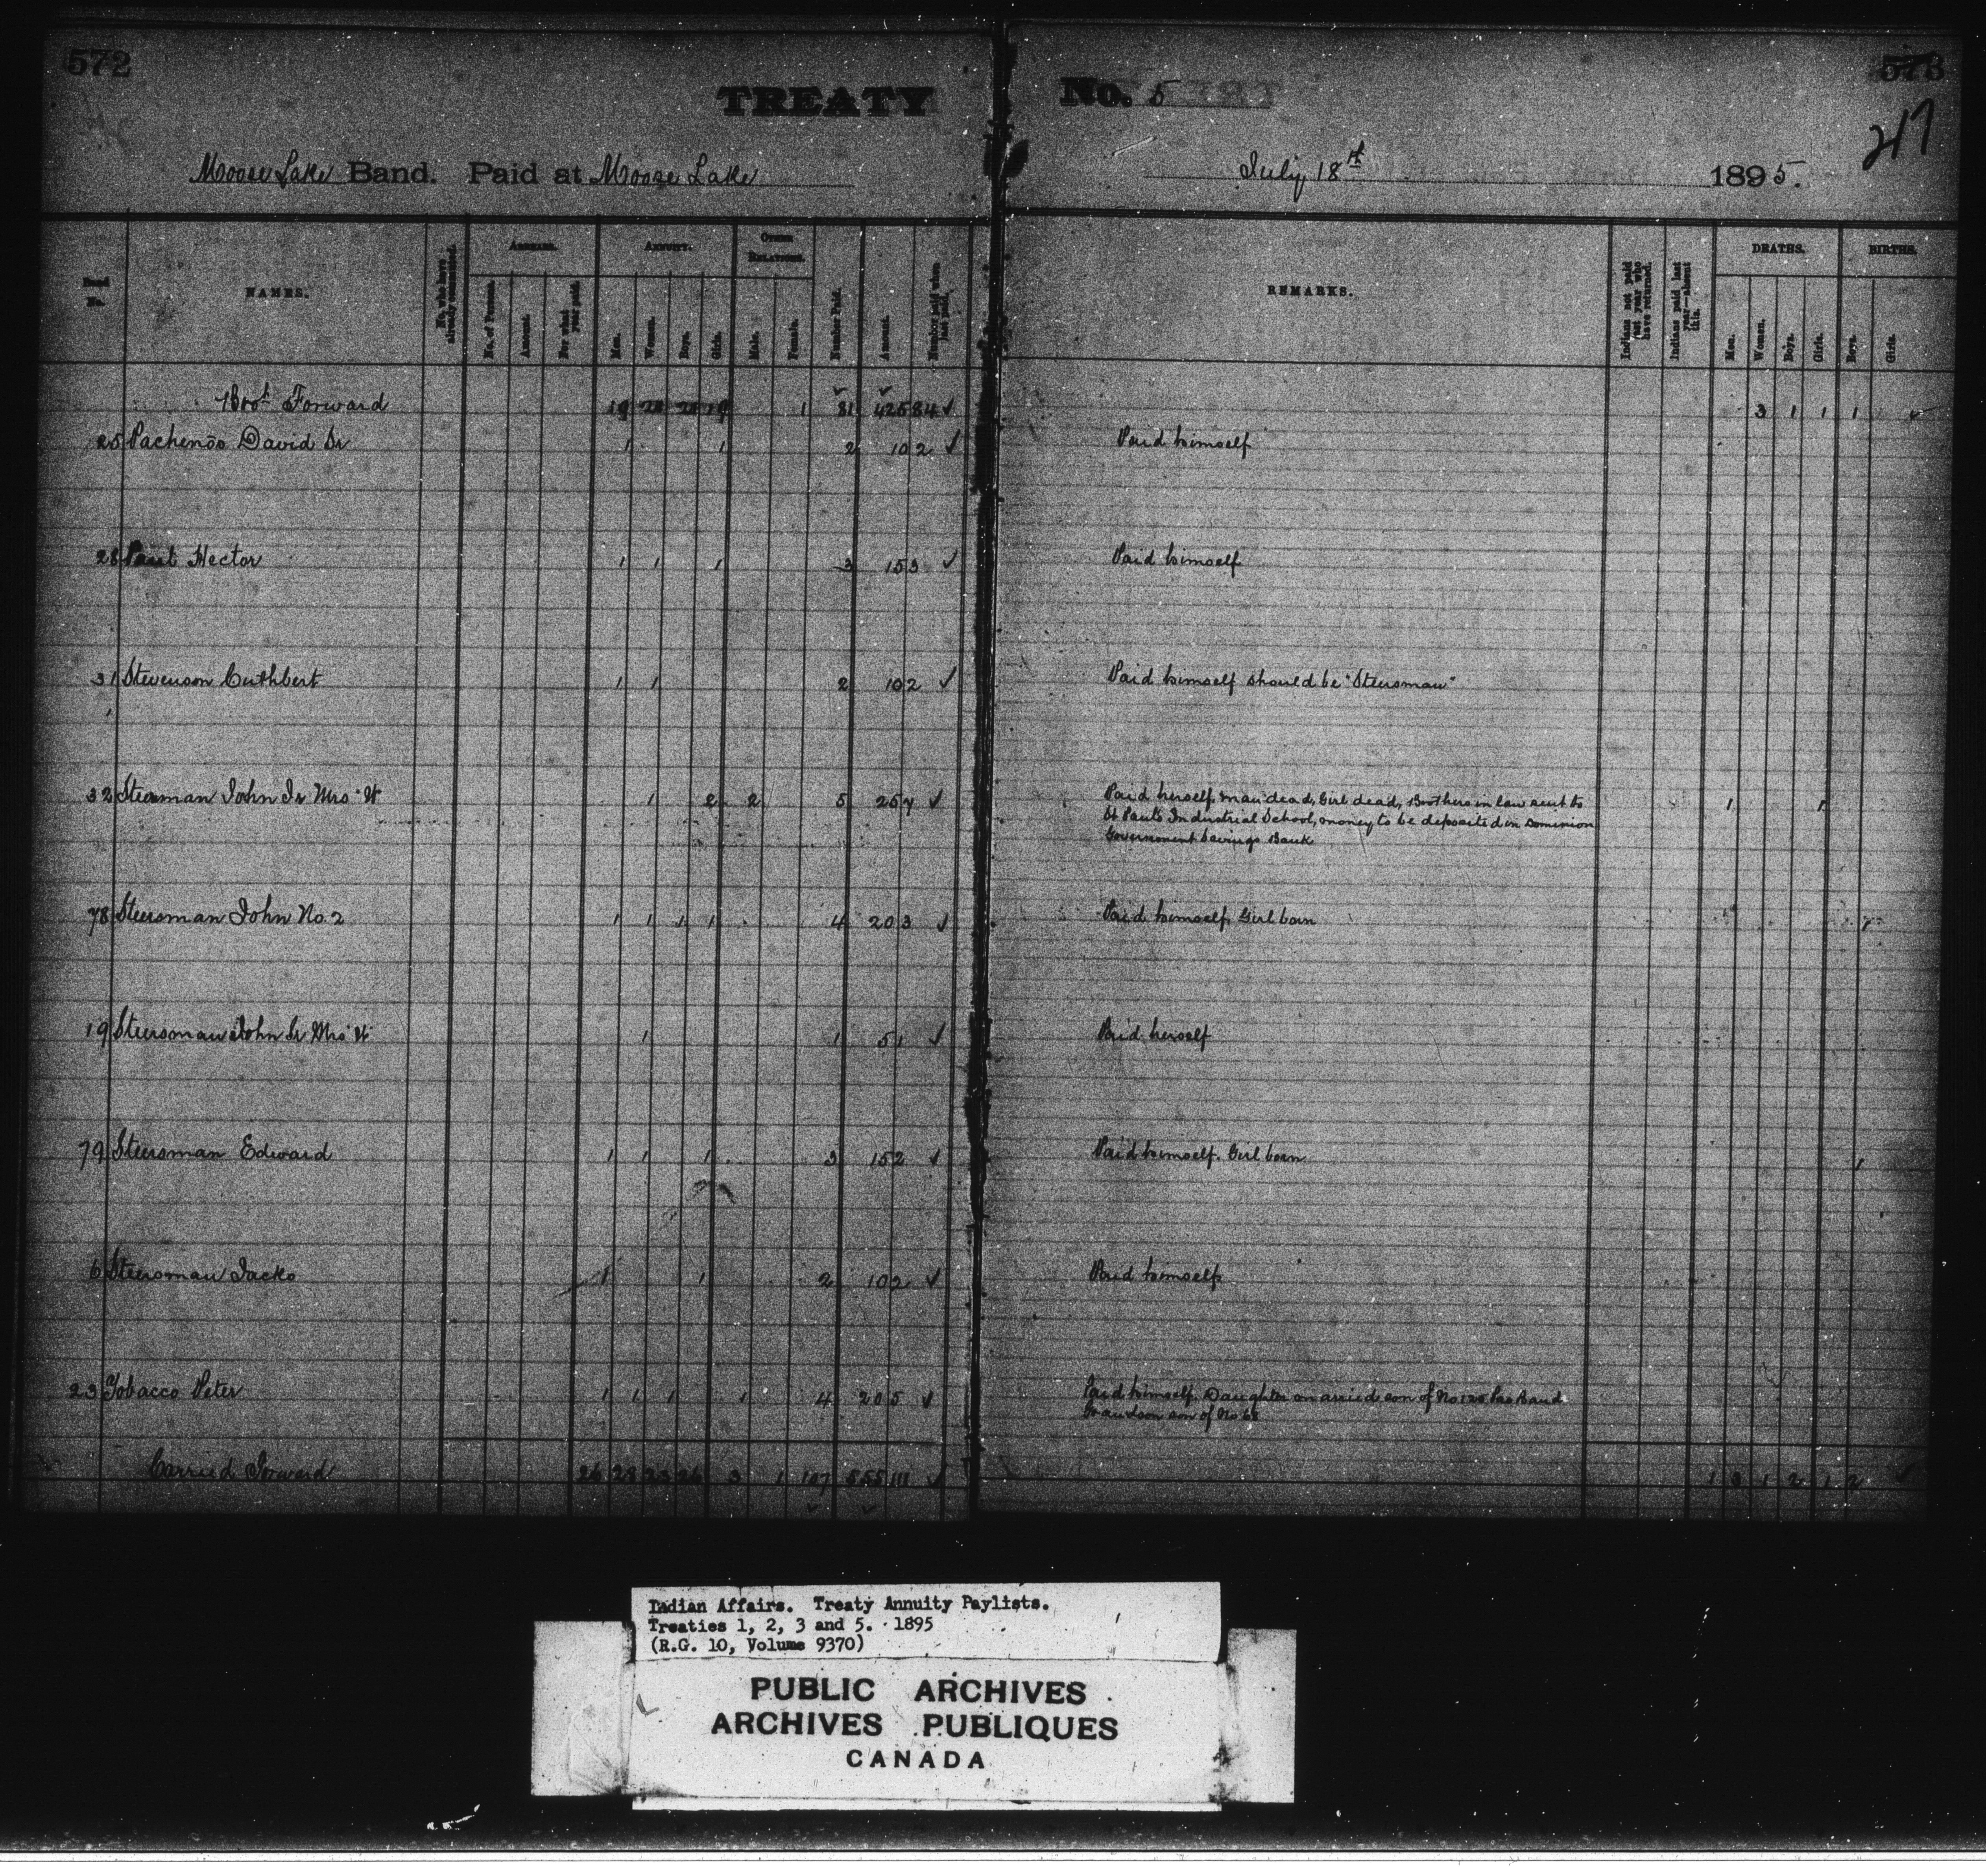 572
TREATY
No. 5
573
217
Moose Lake Band. Paid at Moose Lake
July 18th 1895.
Band No.
NAMES.
No. who have already commuted.
ARREARS.
No. of Persons.
Amount.
For what year paid.
ANNUITY.
Men.
Women.
Boys.
Girls.
OTHER RELATIONS.
Male.
Female.
Number Paid.
Amount.
Number paid when last paid.
REMARKS.
Indians not paid last year who have returned.
Indians paid last year—absent this.
DEATHS.
Men.
Women.
Boys.
Girls.
BIRTHS.
Boys.
Girls.
Brot Forward 19 1 81 425 84 ✓ 3 1 1 1
25 Pachenos David Sr 1 1 2 10 2 ✓ Paid himself
28 Paul Hector 1 1 1 3 15 3 ✓ Paid himself
31 Stevenson Cuthbert 1 1 2 10 2 ✓ Paid himself should be "Steersman"
32 Steersman John Jr Mrs W 1 2 2 5 25 7 ✓ Paid herself, man dead, Girl dead, Brothers in law sent to 1 1
St Pauls Industrial School, money to be deposited in Dominion
Government Savings Bank
78 Steersman John No. 2 1 1 1 1 4 20 3 ✓ Paid himself, Girl born
19 Steersman John Sr Mrs W 1 1 5 1 ✓ Paid herself
79 Steersman Edward 1 1 1 3 15 2 ✓ Paid himself. Girl born 1
6 Steersman Jacko 1 1 2 10 2 ✓ Paid himself
23 Tobacco Peter 1 1 1 1 4 20 5 ✓ Paid himself. Daughter married son of No 125 Pas Band
Grandson son of No
Carried Forward 26 28 23 26 3 1 107 555 111 ✓ 1 3 1 2 1 2 ✓
Indian Affairs. Treaty Annuity Paylists.
Treaties 1, 2, 3 and 5. 1895
(R.G. 10, Volume 9370)
PUBLIC ARCHIVES
ARCHIVES PUBLIQUES
CANADA